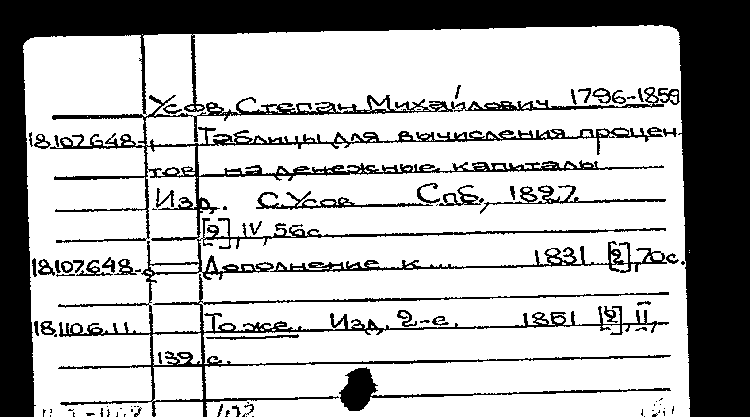 Усов, Степан Михайлович 1796-1859
18.107.6.48. Таблицы для вычисления процен-
тов на денежные капиталы
Изд. С. Усов Спб., 1827.
[2], IV, 56 с.
18.107.6.48. Дополнение к ... 1831. [2], 70 с.
18.110.6.11. То же. Изд. 2-е. 1851 [2], II,
139 с.